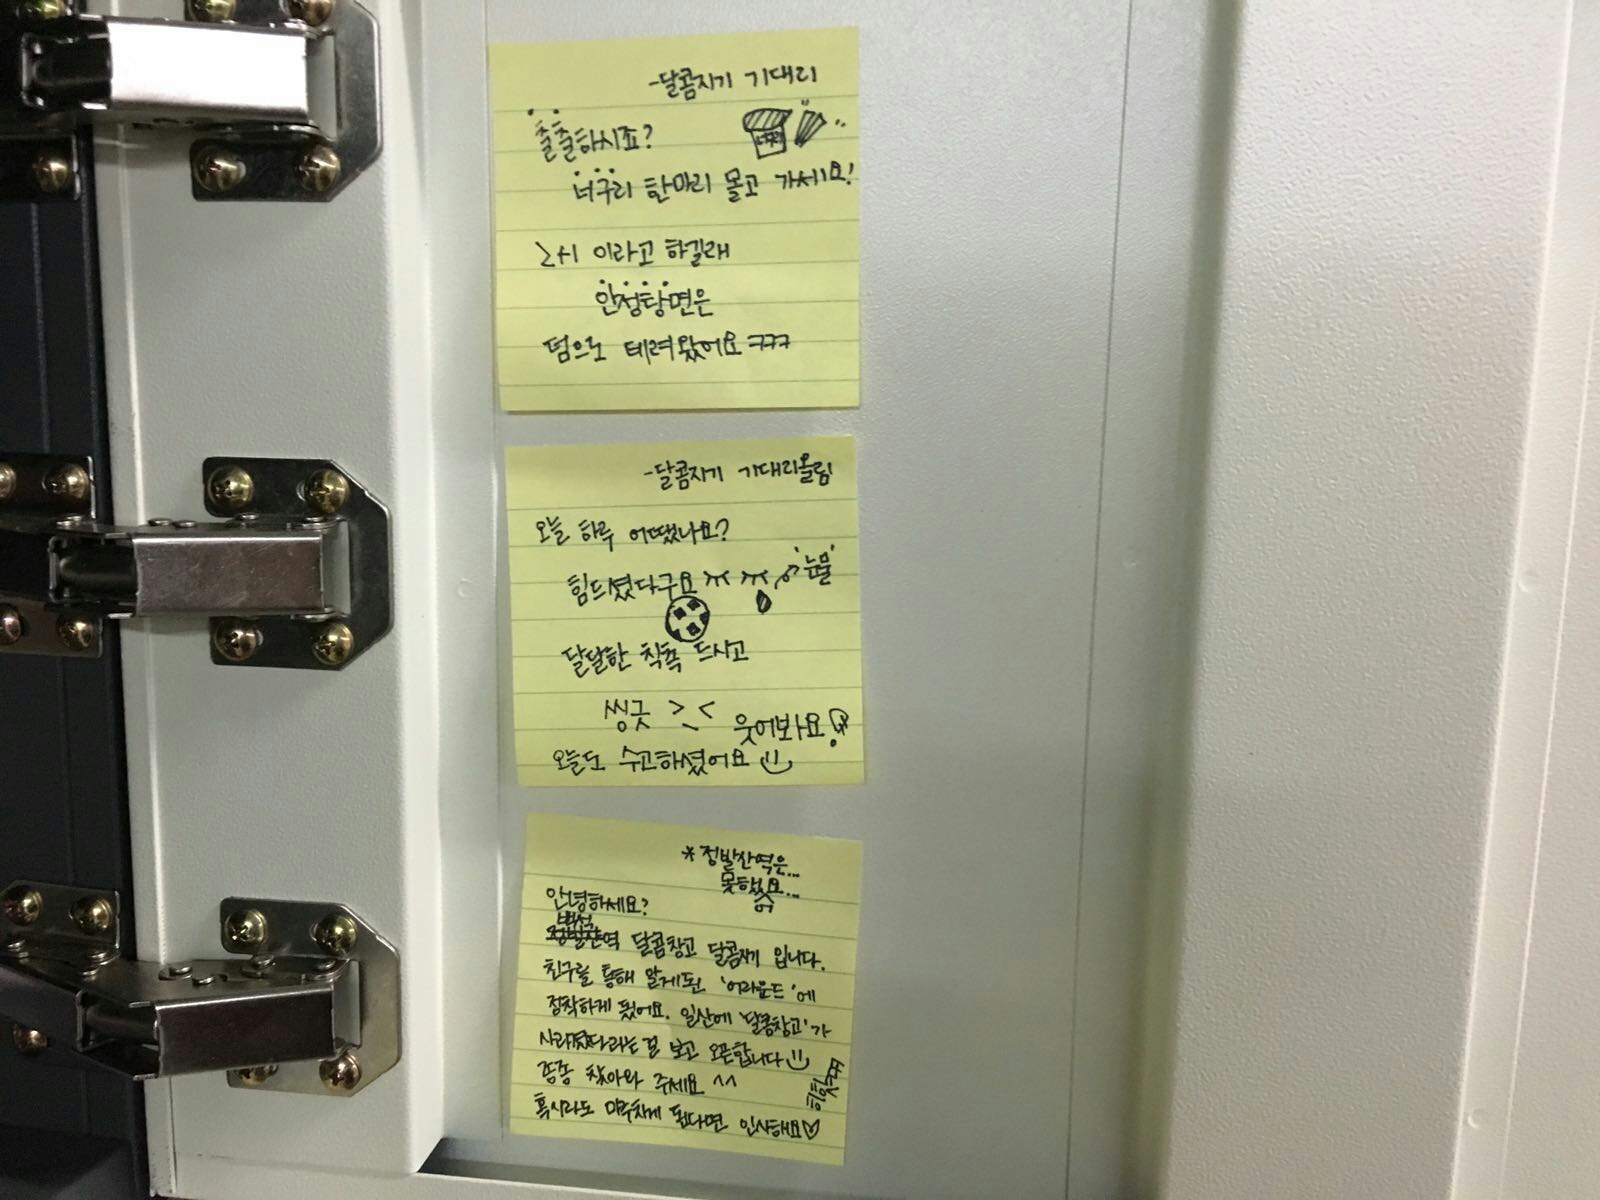 -달콤지기 기대리
출출하시죠?
너구리
너구리 한마리 몰고 가세요!
2+1 이라고 하길래
안성탕면은
덤으로 데려왔어요 ㅋㅋㅋ
-달콤지기 기대리올림
오늘 하루 어땠나요?
힘드셨다구요ㅠㅠ '눈물'
달달한 칙촉 드시고
씽긋 >_< 웃어봐요
오늘도 수고하셨어요
*정발산역은...
못했요...
어
안녕하세요?
백석
정발산역 달콤창고 달콤지기 입니다.
친구를 통해 알게된 '어라운드'에
정착하게 됐어요. 일산에 '달콤창고'가
사라졌다라는걸 보고 오픈합니다
종종 찾아와 주세요 ^^
혹시라도 마주치게 된다면 인사해요♡